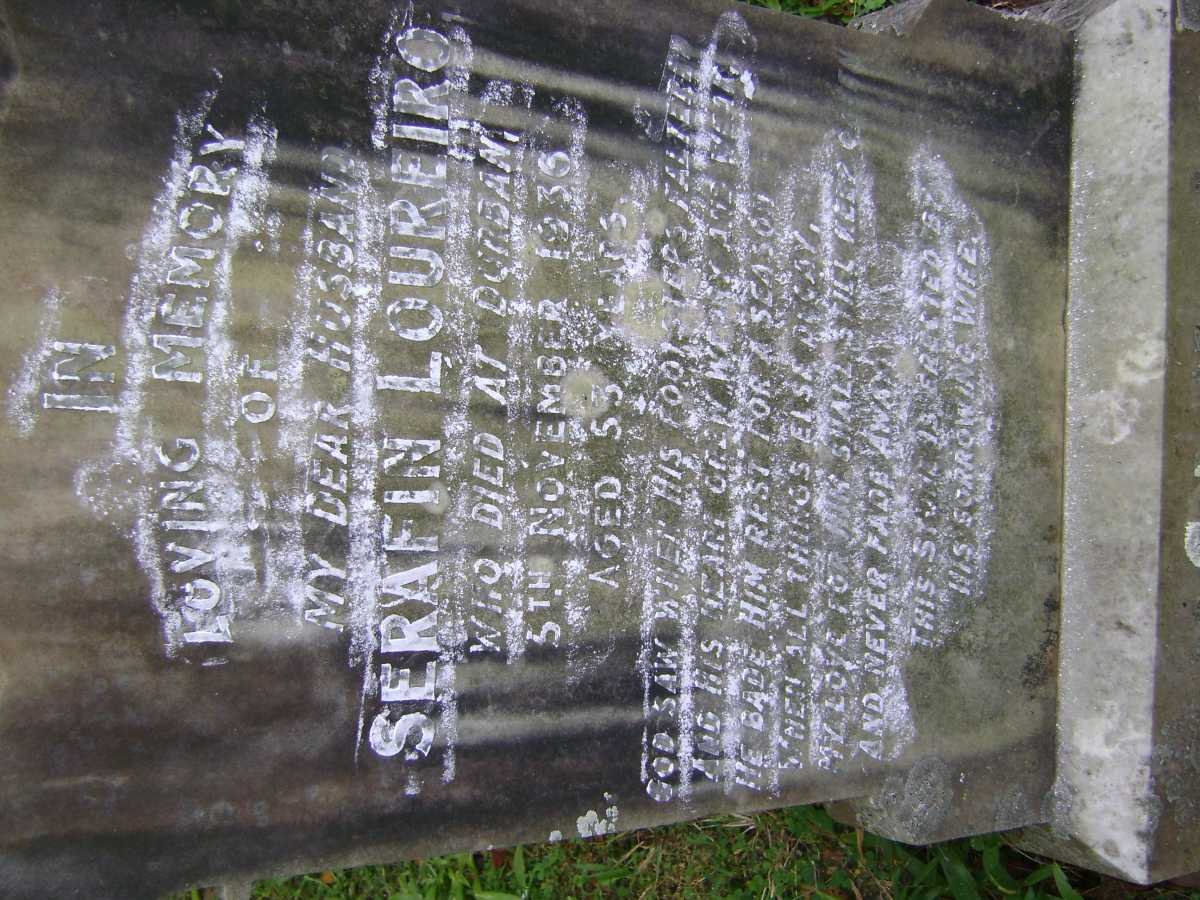 IN
LOVING MEMORY
OF
MY DEAR HUSBAND
SERAFIN LOUREIRO
WHO DIED AT DURBAN
5TH NOVEMBER 1936
AGED 53 YEARS.
GOD SAW WHEN HIS FOOTSTEPS FALTERED
AND HIS HEART GREW WEARY AND WEAK
HE BADE HIM REST FOR A SEASON
WHEN ALL THINGS ELSE DECAY,
MY LOVE FOR HIM SHALL STILL KEEP
AND NEVER FADE AWAY
THIS STONE IS ERECTED BY
HIS SORROWING WIFE.